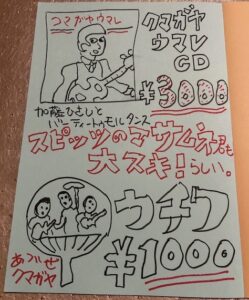 クマガヤウマレ
クマガヤ
ウマレ
CD
¥3000
加藤ひさしと
バーティートゥモルダンス
スピッツのマサムネも
大スキ!らしい。
ウチワ
¥1000
あうせ
クマガヤ